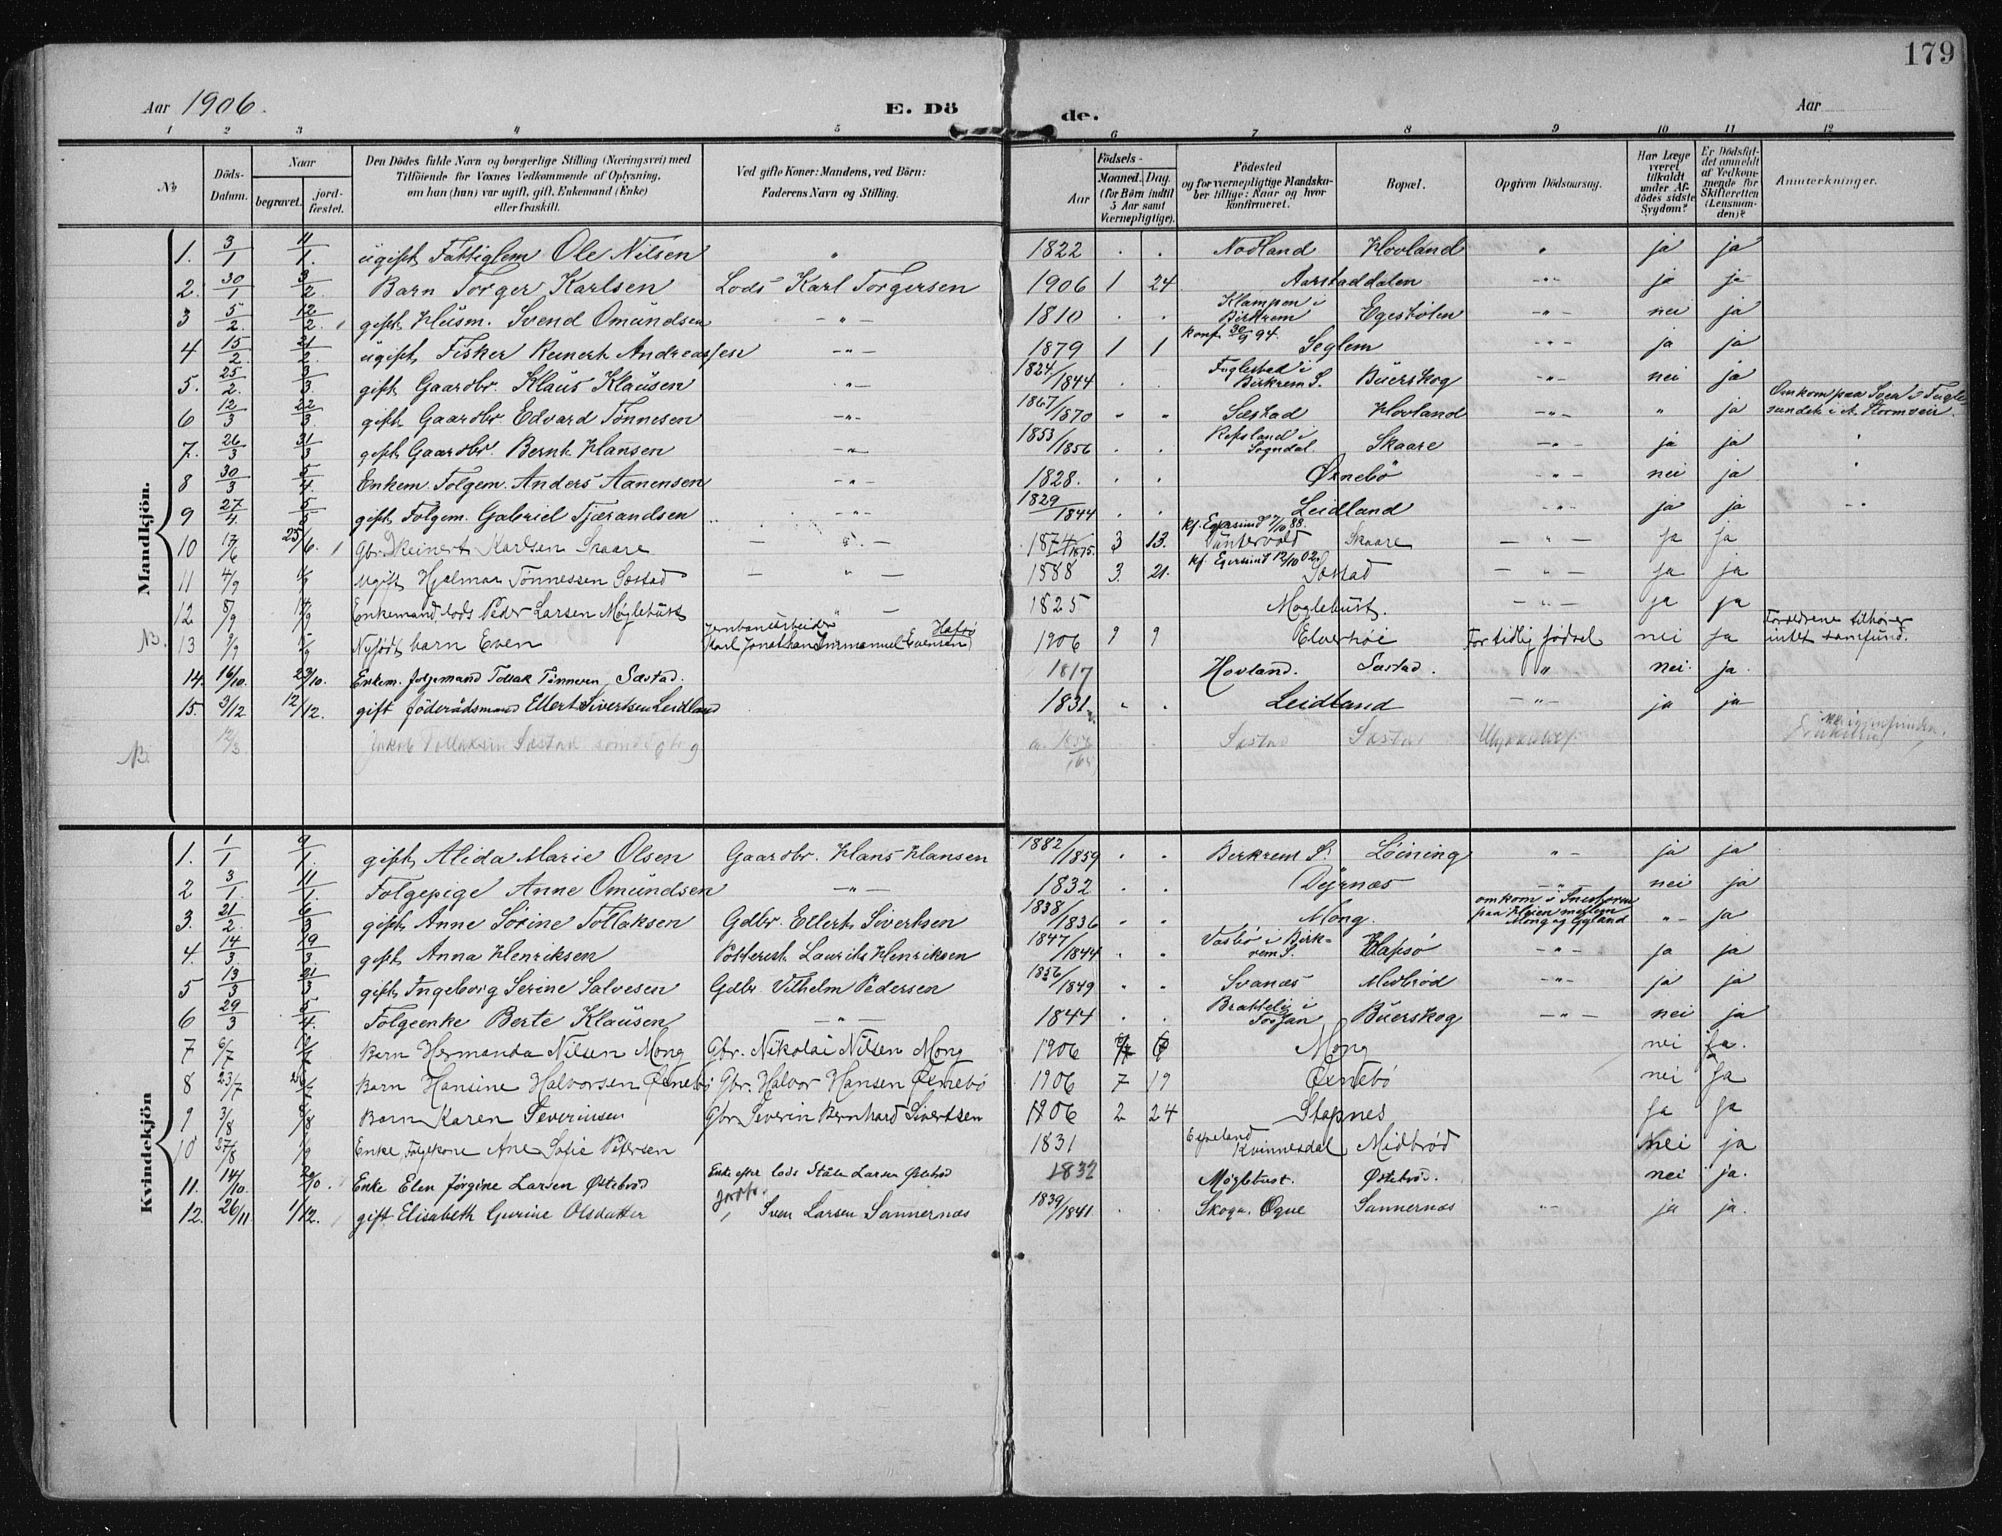 179
Aar 1906. E. Dö de. Aar
1 2 3 4 5 6 7 8 9 10 11 12
No Döds-Datum. Naar begravet. jord-fæstet. Den Dödes fulde Navn og borgerlige Stilling (Næringsvei) med Tilföiende for Voxnes Vedkommende af Oplysning, om han (hun) var ugift, gift, Enkemand (Enke) eller fraskilt. Ved gifte Koner: Mandens, ved Börn: Faderens Navn og Stilling. Födsels- Aar Maaned. Dag. (for Börn indtil 5 Aar samt Værnepligtige). Födested og for værnepligtige Mandskaber tillige: Naar og hvor konfirmeret. Bopæl. Opgiven Dödsaarsag. Har Læge været tilkaldt under Afdödes sidste Sygdom? Er Dödsfaldet anmeldt af Vedkommende for Skifteretten (Lensmanden)? Anmærkninger.
Mandkjön.
1. 3/1 11/1. ugift Fattiglem Ole Nilsen " 1822 . . Nodland Hovland " ja ja
2. 30/1 3/2. Barn Torger Karlsen Lods Karl Torgersen 1906 1 24 Aarstaddalen -"- ja ja
3 5/2. 12/2. gift Husm. Svend Omundsen -"- 1810 . . Klampen i Birkrem Egestølen -"- nei ja
4 15/2. 21/2. ugift Fisker Reinert Andreassen -"- 1879 1 1 Konf. 30/9 94. Seglem -"- ja ja
5. 25/2. 3/3. gift Gaardbr. Klaus Klausen -"- 1824/1844 . . Fuglestad i Birkrem S. Buerskog -"- nei ja
6 12/3 22/3. gift Gaardbr Edvard Tønnesen -"- 1867/1870 " " Sæstad Hovland -"- " ja Omkom paa Søen i Fuglesundet i et Stormveir.
7. 26/3 31/3 gift Gaardbr. Bernt Hansen -"- 1853/1856 . . Refsland i Sogndal Skaare -"- ja ja "
8 30/3 5/4. Enkem. Folgem. Anders Aanensen -"- 1828. . . Øxnebö -"- nei ja "
9 27/4. 5/5 gift Folgem. Gabriel Tjærandsen -"- 1829/1844 . . Leidland -"- ja ja -"-
10 17/6 25/6. Gbr. Reinert Karlsen Skaare - " - 1874/1875. 3 13. Kf. Egersund 7/10 88. Skaare - " - ja ja
11 4/9 Ugift Hjalmar Tönnessen Sæstad - " - 1888 3. 21. Kf. Egersund 12/10 02. Sæstad - " - ja ja
12 8/9 14/9 Enkemand lods Peder Larsen Møglehust " - 1825 Moglehust. - " - ja ja
NB. 13 9/9 Nyfødt barn Even Jernbanearbeider Karl Jonathan Immanuel Evensen Hafsø 1906 9 9 Elverhøi For tidlig fødsel nei ja Forældrene tilhører intet samfund.
14. 16/10. 23/10. Enkem. folgemand Tollak Tønnesen Sæstad. 1817 Hovland. Sæstad. " nei ja.
15. 3/12 12/12. gift föderådsmand Ellert Sivertsen Leidland 1831 " . Leidland -"- ja ja
NB. 12/3 Jakob Tollaksen Sæstad Sæstad Sæstad
Kvindekjön
1. 1/1 9/1. gift Alida Marie Olsen Gaardbr. Hans Hansen 1882/1859 . . Birkrem S. Leining " - ja ja
2 3/1. 11/1. Folgepige Anne Omundsen -"- 1832 . . Dyrnæs -"- nei ja
3. 21/2. 6/3 gift Anne Sørine Tollaksen Gdbr. Ellert Sivertsen 1838/1836 . . Mong. omkom i Snestorm paa Heien mellem Mong og Eyeland "- ja
4. 14/3. 19/3. gift Anna Henriksen Potterist Laurits Henriksen 1847/1844 " " Vasbö i Birkrem S. Hafsö -"- ja ja
5 13/3 21/3 gift Ingeborg Serine Salvesen Gdbr Vilhelm Pedersen 1856/1849 " . Svanæs Midbrød -"- ja ja
6 29/3 5/4. Folgeenke Berte Klausen -"- 1844 . . Brattelig i Fosfjan Buerskog -"- nei ja
7 6/7 Barn Hermanda Nilsen Mong Gbr. Nikolai Nilsen Mong 1906 Mong nei ja.
8 23/7 Barn Hansine Halvorsen Øxnebö Gbr. Halvor Hansen Øxnebö 1906 7 19 Øxnebö nei ja
9 3/8 Barn Karen Severinsen Gbr Severin Bernhard Sivertsen 1906 2 24 Stapnes ja ja
10 27/8 Enke, Folgekone Ane Sofie Petersen 1831 Kvinnesdal Midbrød nei ja
11. 14/10. Enke Elen Jørgine Larsen Østebrød Enke efter lods Ståle Larsen Østebrød 1832 Møglehust. Østebrød. nei ja.
12. 26/11 1/12. gift Elisabeth Gurine Olsdatter Sven Larsen Sannernæs 1839/1841. . . Skoga. Ogne Sannernæs "- ja ja.